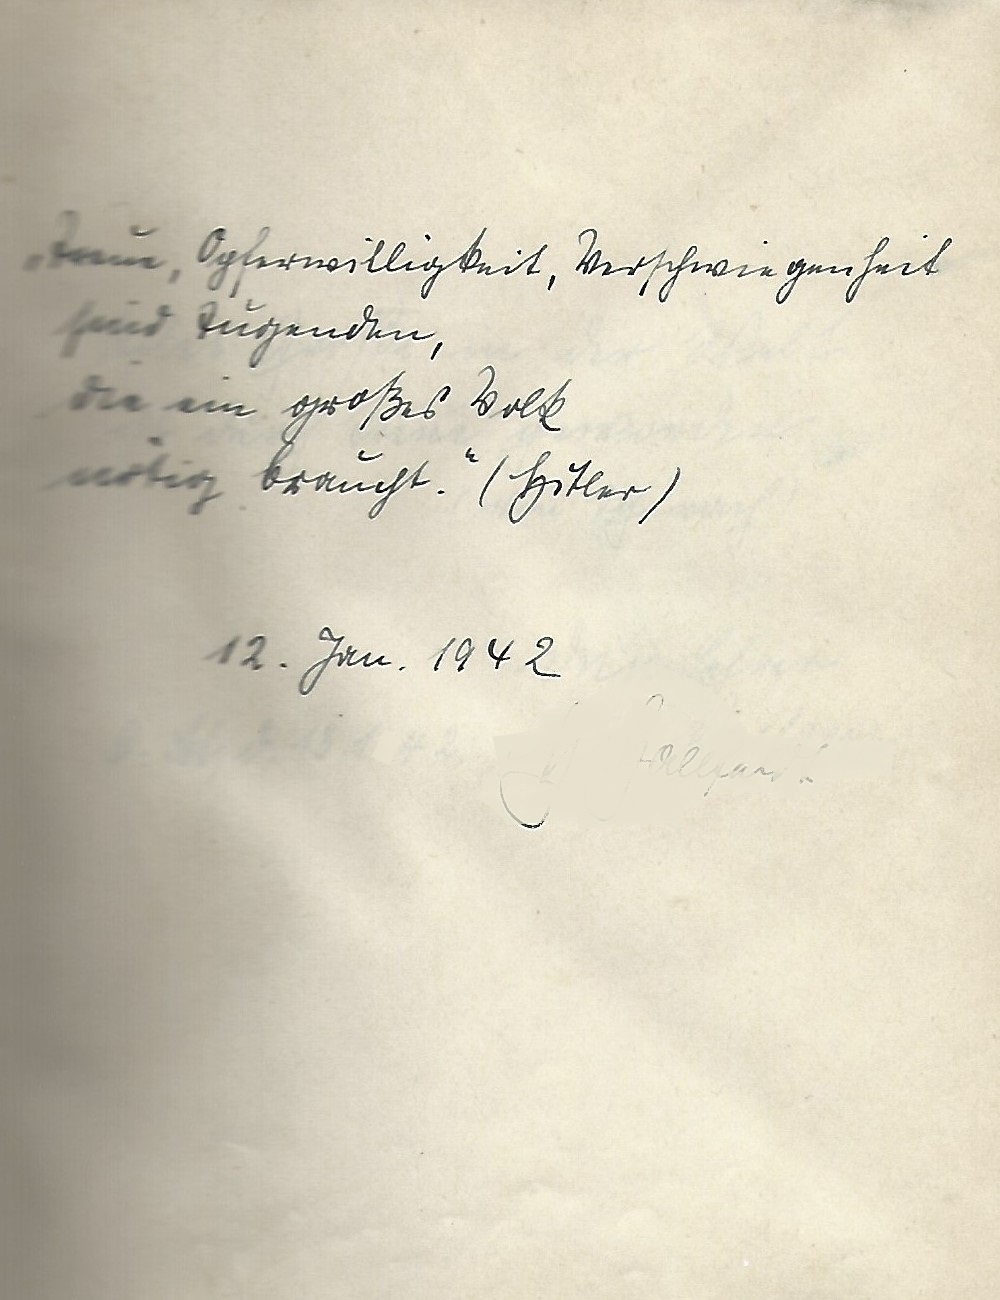 „Treue, Opferwilligkeit, Verschwiegenheit
sind Tugenden,
die ein großes Volk
nötig braucht.“ (Hitler)
12. Jan. 1942